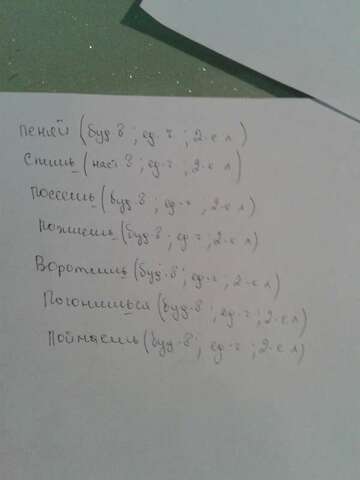 пеняй (буд.в; ед.ч; 2-е л)
Спишь (наст.в; ед.ч; 2-е л)
посеешь (буд.в; ед.ч; 2-е л)
пожнешь (буд.в; ед.ч; 2-е л)
Воротишь (буд.в; ед.ч; 2-е л)
Погонишься (буд.в; ед.ч; 2-е л)
поймаешь (буд.в; ед.ч; 2-е л)